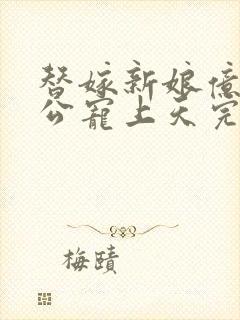 替嫁新娘億
公寵上天完
梅賾